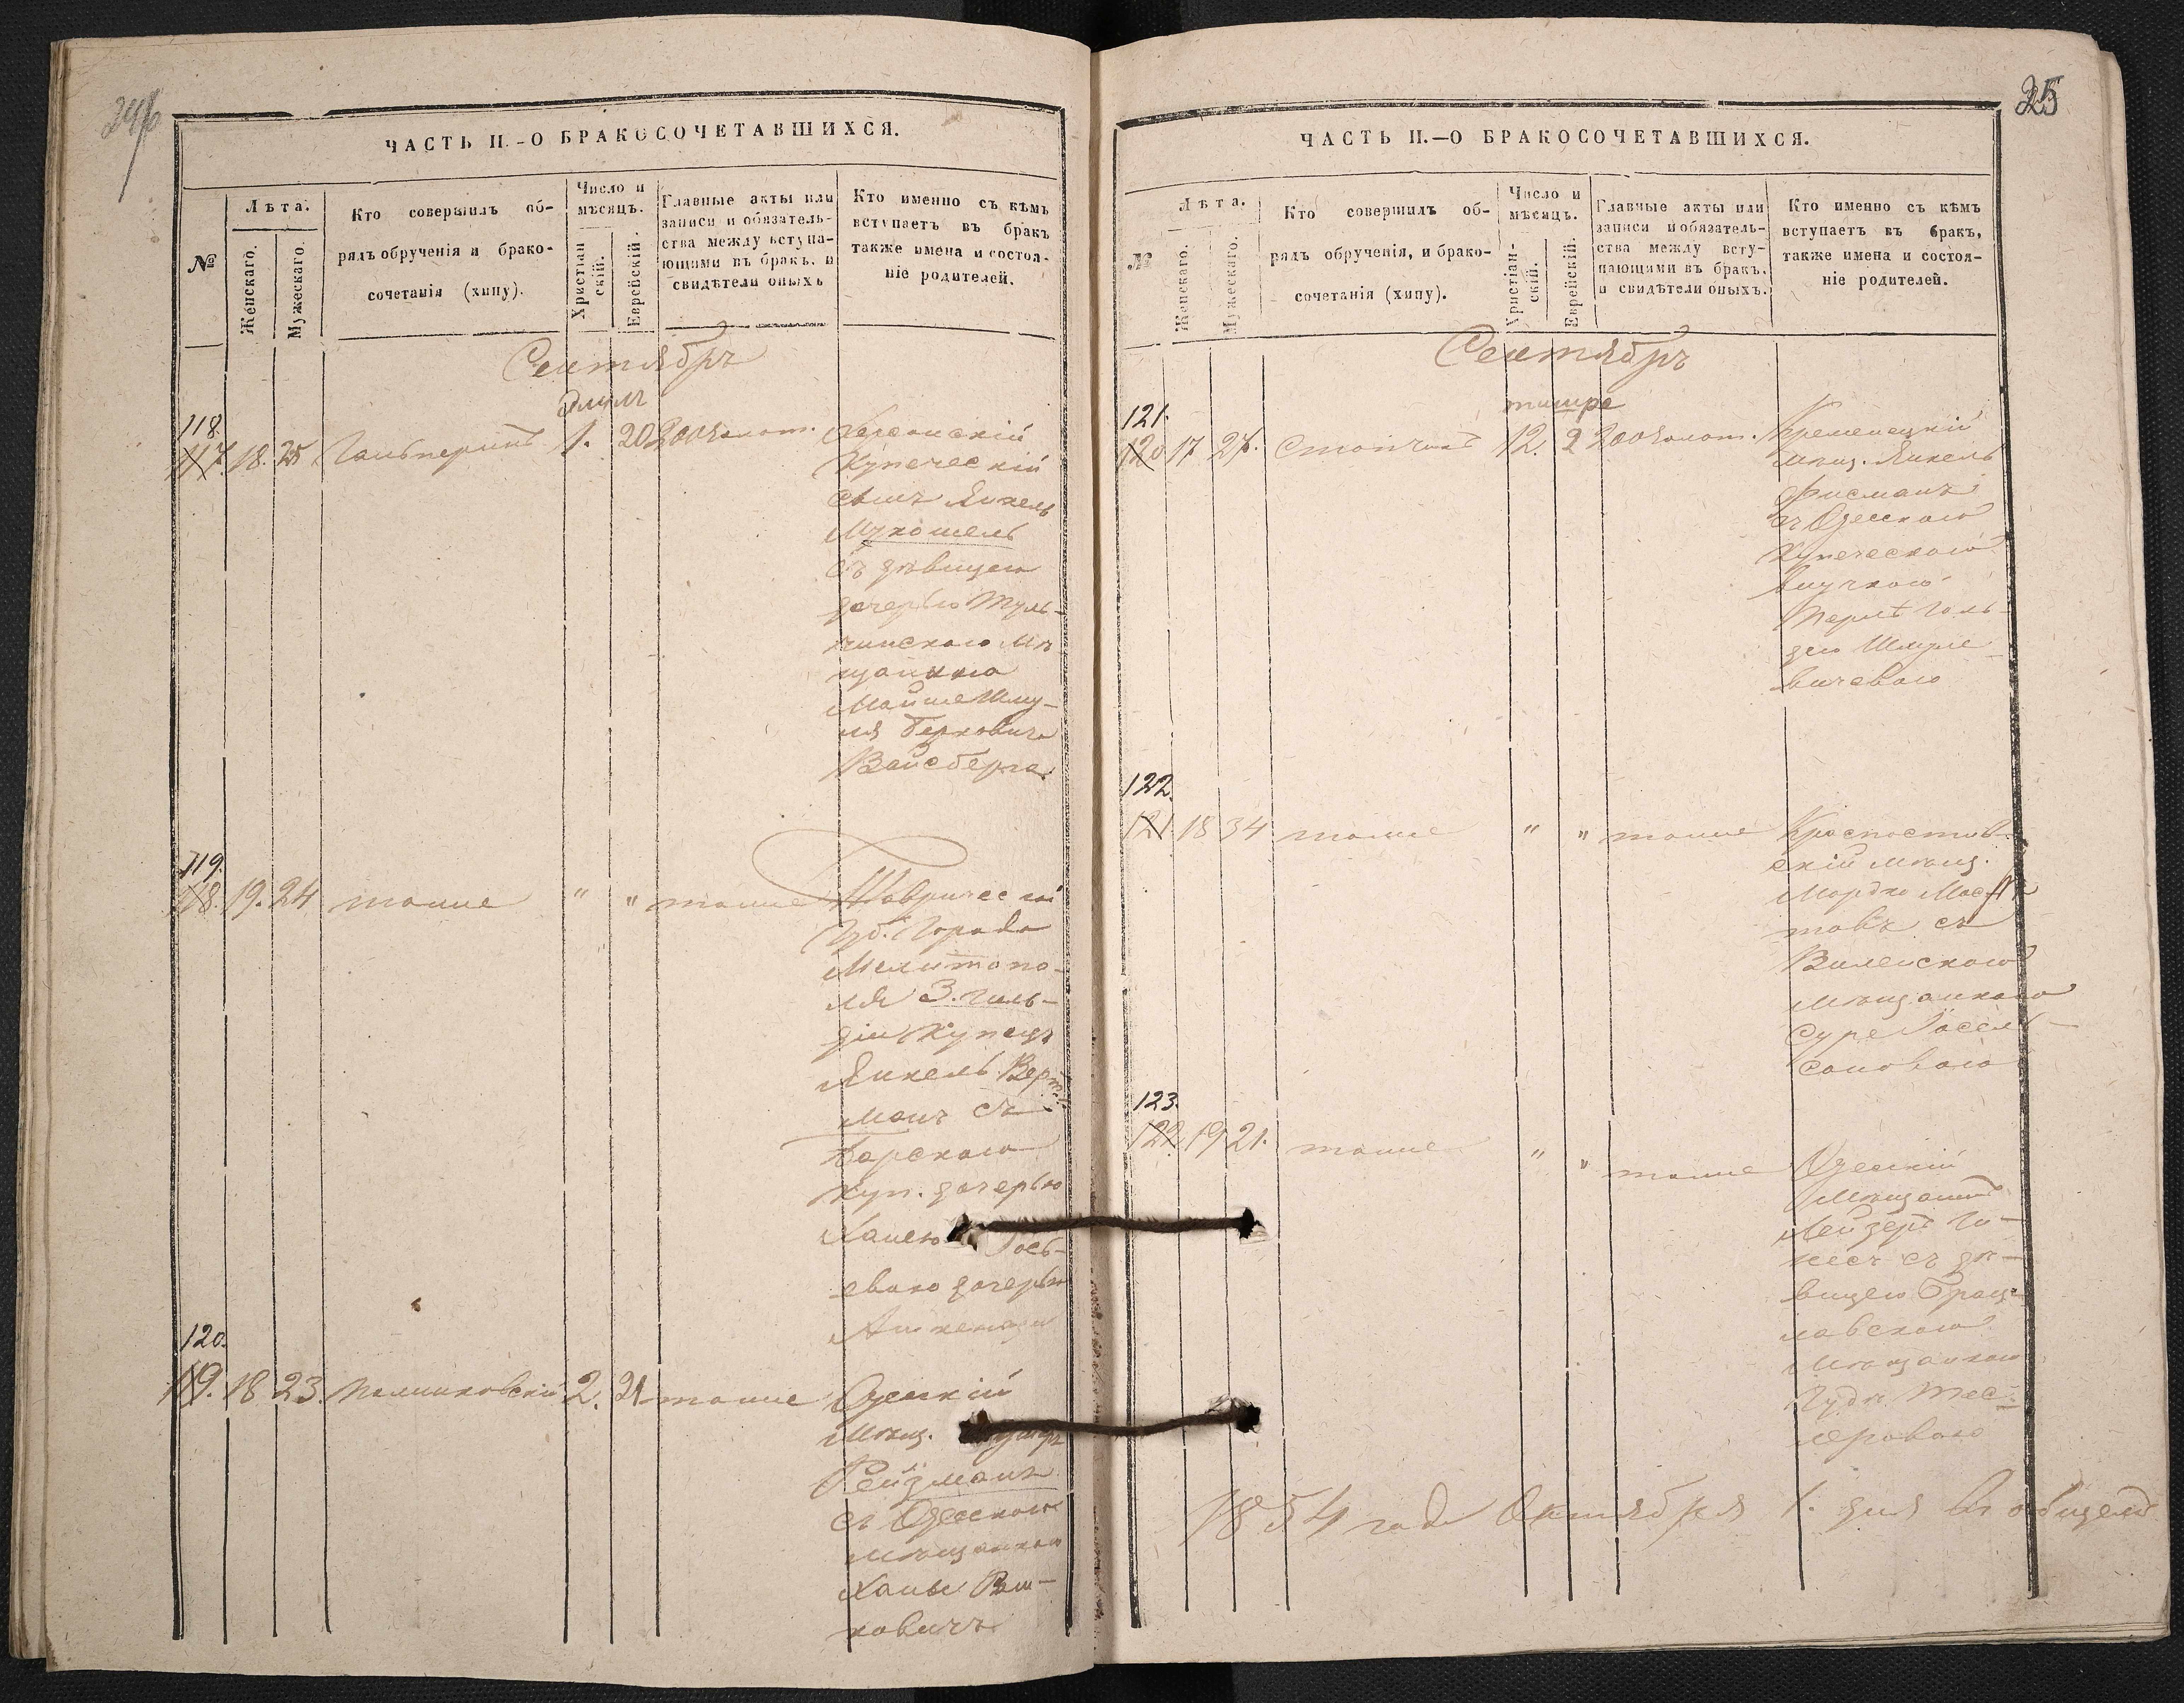 246
ЧАСТЬ II.–О БРАКОСОЧЕТАВШИХСЯ.
№
Лѣта.
Женскаго.
Мужескаго.
Кто совершилъ об-
рядъ обрученія и брако-
сочетанія (хипу).
Число и
мѣсяцъ.
Христіан
скій.
Еврейскій.
Главные акты или
записи и обязатель-
ства между вступа-
ющими въ бракъ, и
свидѣтели оныхъ
Кто именно съ кѣмъ
вступаетъ въ бракъ
также имена и состоя-
ніе родителей.
Сентябрь
Элулъ
118.
117. 18. 25 Гальперинъ 1. 20 200 золот. Херсонскій
Купеческій
сынъ Янкель
Мукошель
съ дѣвицею
дочерью Туль-
чинскаго Мѣ
щанина
Мойше Шму-
ля Берковича
Вайсберга.
119.
118. 19. 24 тоже " " тоже Таврическій
Губ. Города
Мелитопо-
ля 3. гиль-
діи Купецъ
Янкель Верт-
манъ съ
Барскаго
Куп. дочерью
Ханею
евою дочерью
Ашкенази
120.
119. 18 23. Полинковскій 2. 21 тоже Одесскій
Мѣщ.
Рейзманъ
съ Одесскою
Мѣщанкою
Ханы
ковичъ
25
ЧАСТЬ II.—О БРАКОСОЧЕТАВШИХСЯ.
№
Лѣта.
Женскаго.
Мужескаго.
Кто совершилъ об-
рядъ обрученія, и брако-
сочетанія (хипу).
Число и
мѣсяцъ.
Христіан-
скій.
Еврейскій.
Главные акты или
записи и обязатель-
ства между всту-
пающими въ бракъ,
и свидѣтели оныхъ.
Кто именно съ кѣмъ
вступаетъ въ бракъ,
также имена и состоя-
ніе родителей.
Сентябрь
тишре
121.
120 17 27. Столчикъ 12. 2 200 золот. Кременецкій
мѣщ. Янкель
Фисманъ
съ Одесскою
Купеческою
внучкою
Перлѣ Голь-
дею Шмуле
вичевою
122.
121. 18 34 тоже " " тоже
скій мѣщ.
Мордко
товъ съ
Виленскою
мѣщанкою
Суре Іосель-
соновою
123.
122. 19 21. тоже " " тоже Одесскій
Мѣщанинъ
Лейзеръ Го-
несъ съ дѣ-
вицею Брац-
лавскою
Мѣщанкою
Гудѣ Тес-
леровою
1854 года Октября 1. дня въ общемъ